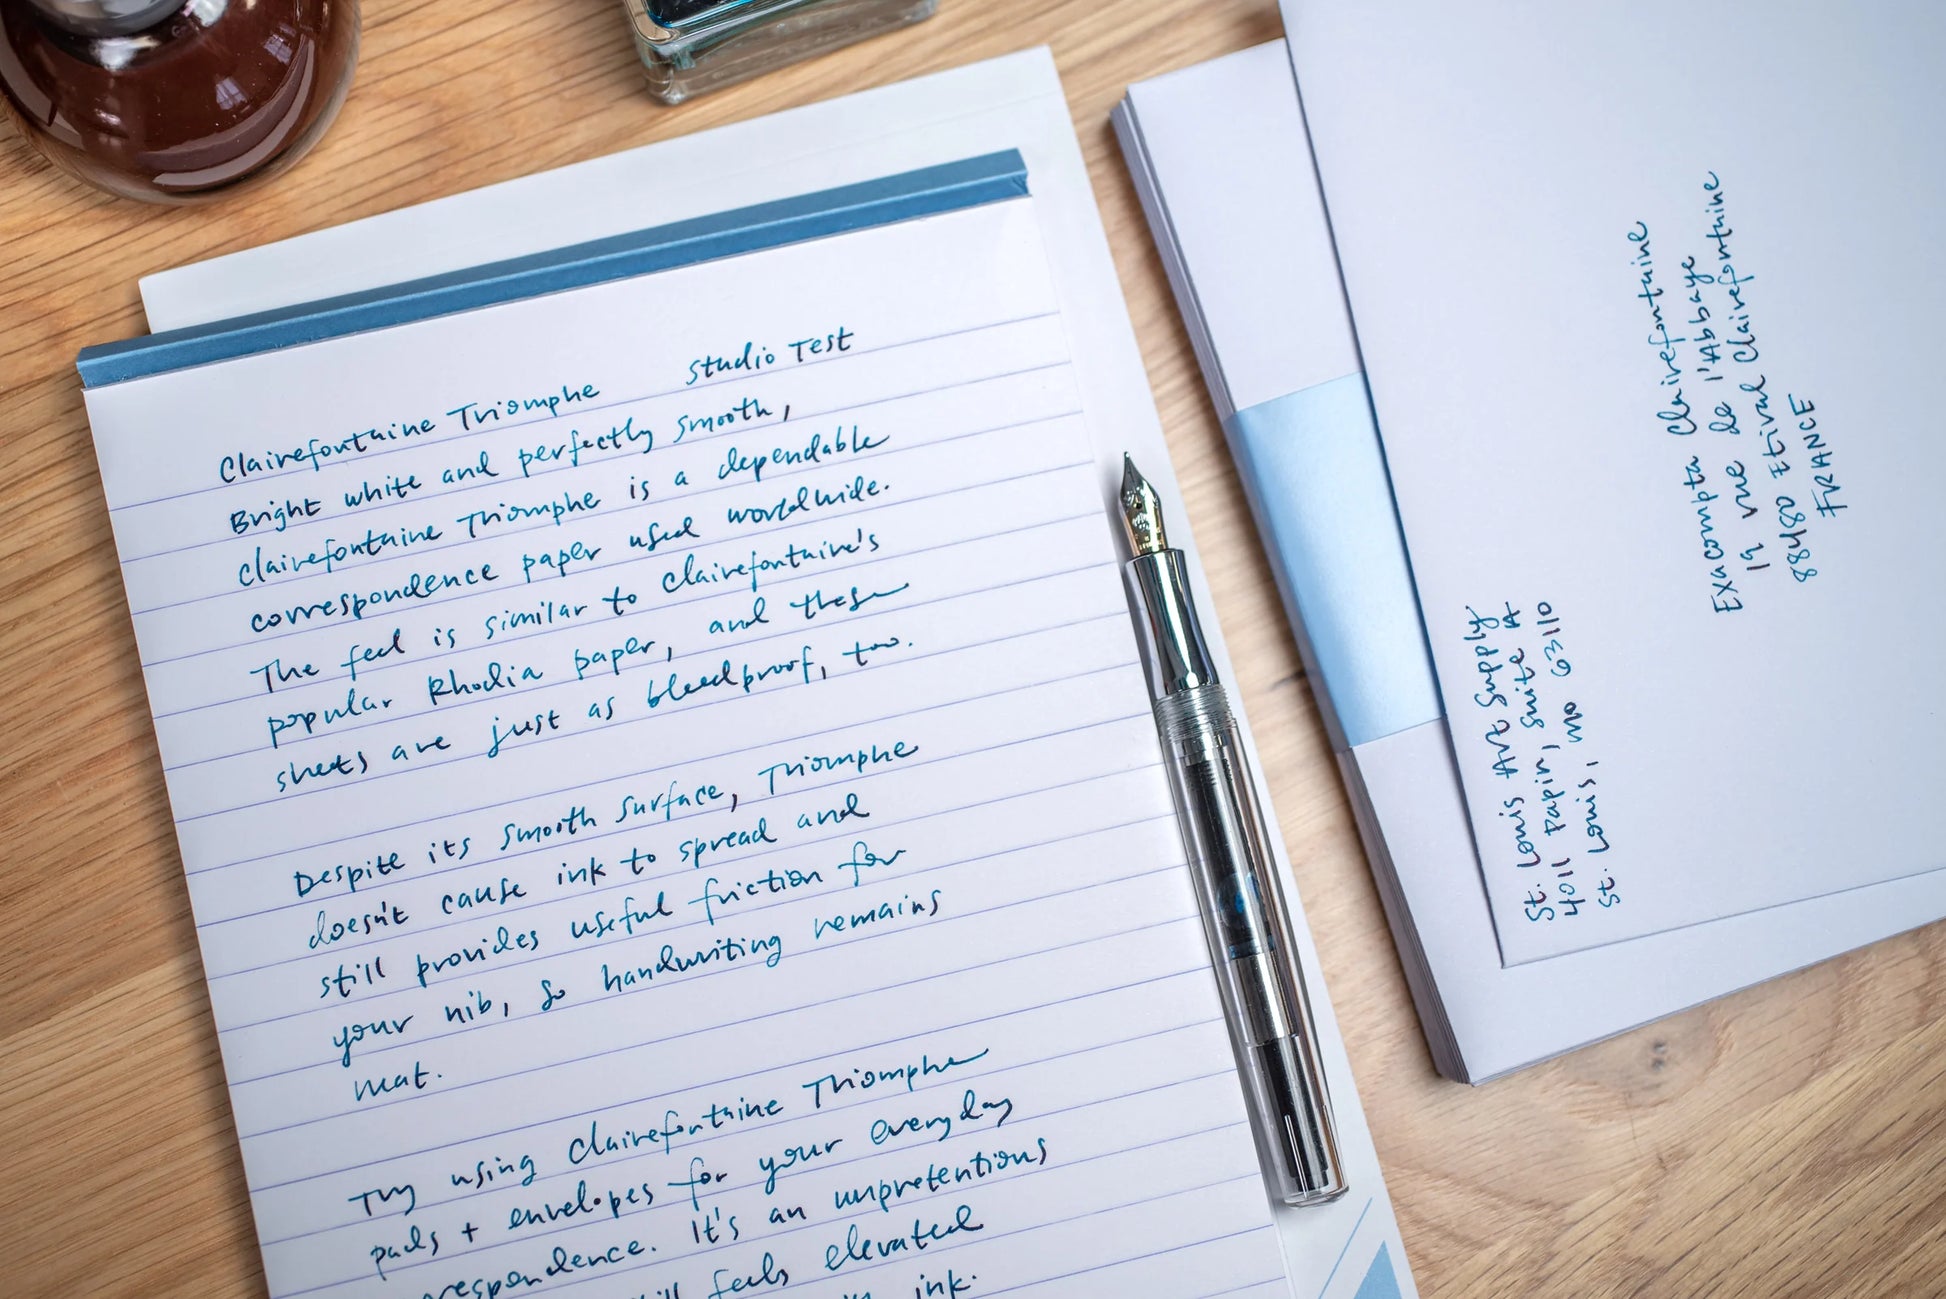 Clairefontaine Triomphe Studio Test
Bright white and perfectly smooth,
Clairefontaine Triomphe is a dependable
correspondence paper used worldwide.
The feel is similar to Clairefontaine's
popular Rhodia paper, and these
sheets are just as bleedproof, too.
Despite its smooth surface, Triomphe
doesn't cause ink to spread and
still provides useful friction for
your nib, so handwriting remains
neat.
Try using Clairefontaine Triomphe
pads + envelopes for your everyday
respondence. It's an unpretentious
feels elevated
ink.
St. Louis Art Supply
4011 Papin, Suite A
St. Louis, MO 63110
Exacompta Clairefontaine
19 rue de l'Abbaye
88480 Etival Clairefontaine
FRANCE